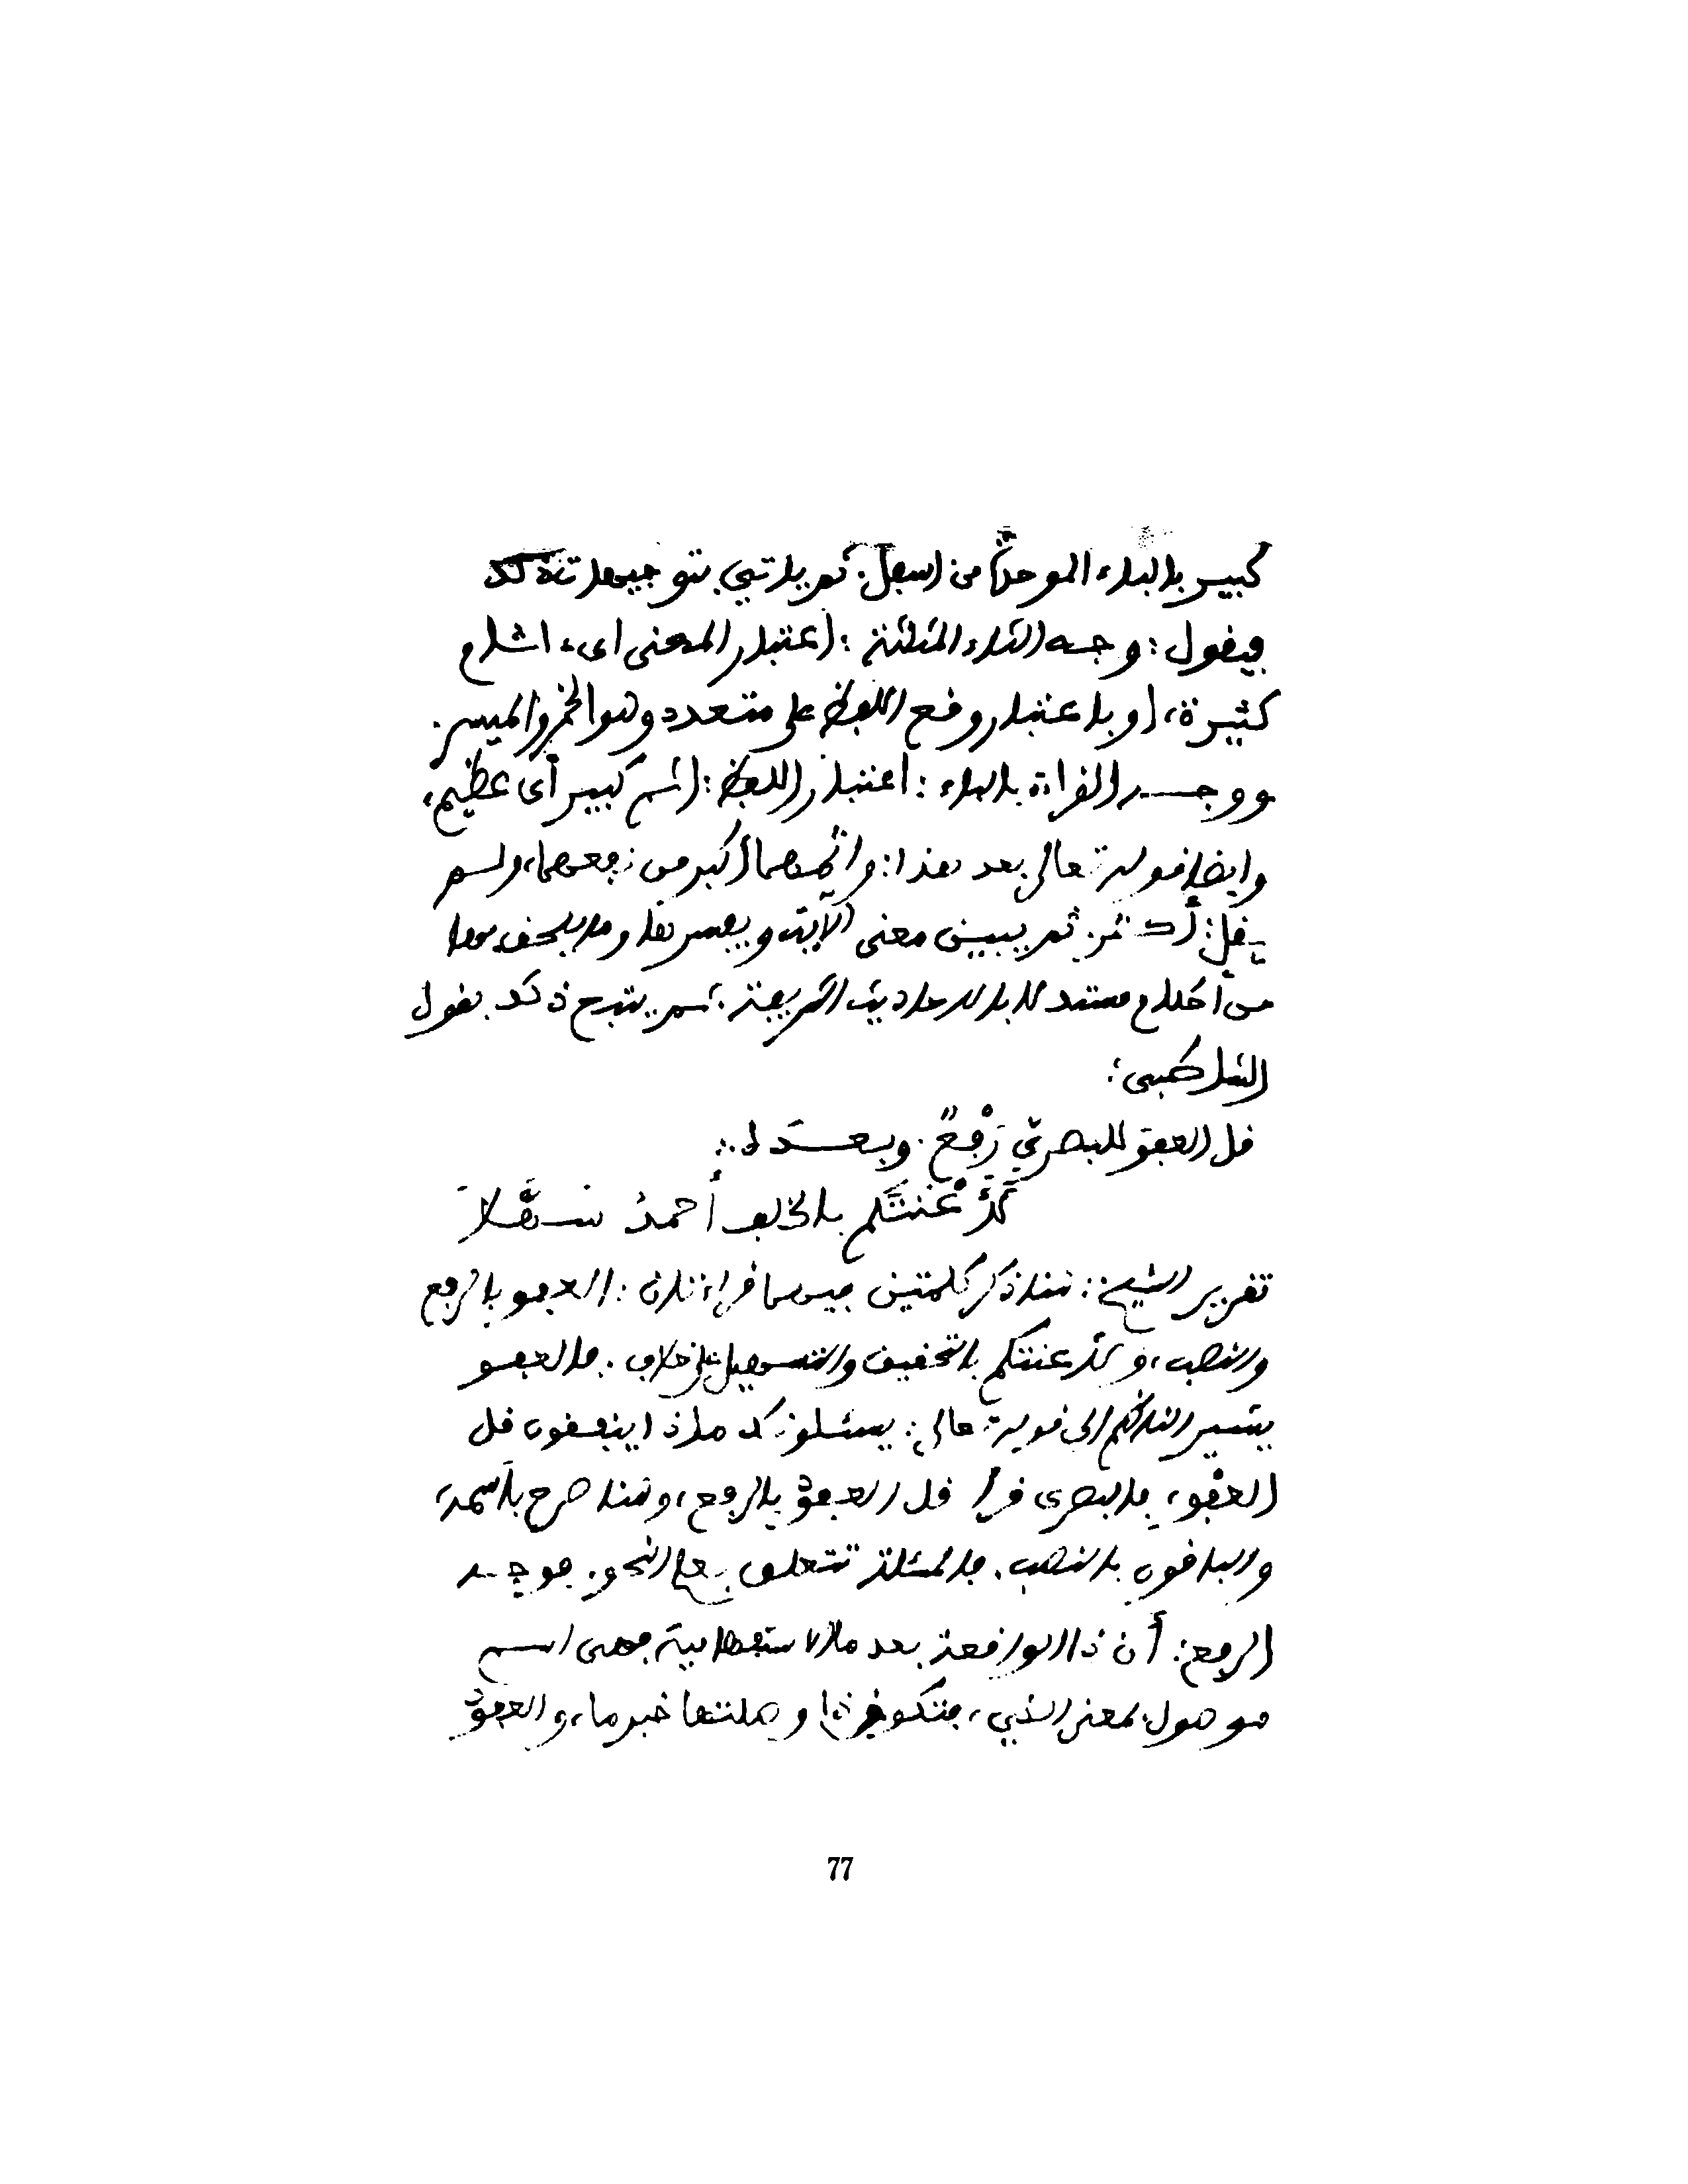 كبير بالباء الموحدة من أسفل. ثم ياتي بتوجيه
فيقول: وجه الثاء المثلثة: اعتبار المعنى اى، اثام
كثيرة، او باعتبار وقع اللفظ على متعدد وهو الخمر والميسر.
ووجه القراءة بالباء: اعتبار اللفظ: إثم كبير أى عظيم،
وايضا قوله تعالى بعد هذا: وإثمهما أكبر من نفعهما، ولم
يقل: أكثر. ثم يبين معنى الآية ويفسرها وما يلحق بها
من أحكام مستدلا بالاحاديث الشريفة. ثم يتبع ذلك بقول
الشاطبى:
قل العفو للبصريّ رَفْعٌ. وبعدَه:
لَأَعْنَتَكم بالخلف أحمدُ سَهَّلاَ
تقرير الشيخ: هنا ذكر كلمتين فيهما قراءتان: العفو بالرفع
والنصب، ولأعنتكم بالتحقيق والتسهيل على خلاف. فالعفو
يشير الناظم إلى قوله تعالى: يسئلونك ماذا ينفقون قل
العفْو، فالبصرى قرأ قل العفوُ بالرفع، وهنا صرح باسمه،
والباقون بالنصب. فالمسئلة تتعلق بعلم النحو. فوجه
الرفع: أن ذا الواقعة بعد ما الاستفهامية فهى اسم
موصول بمعنى الذي، فتكون ذا وصلتها خبر ما، والعفوُ
77